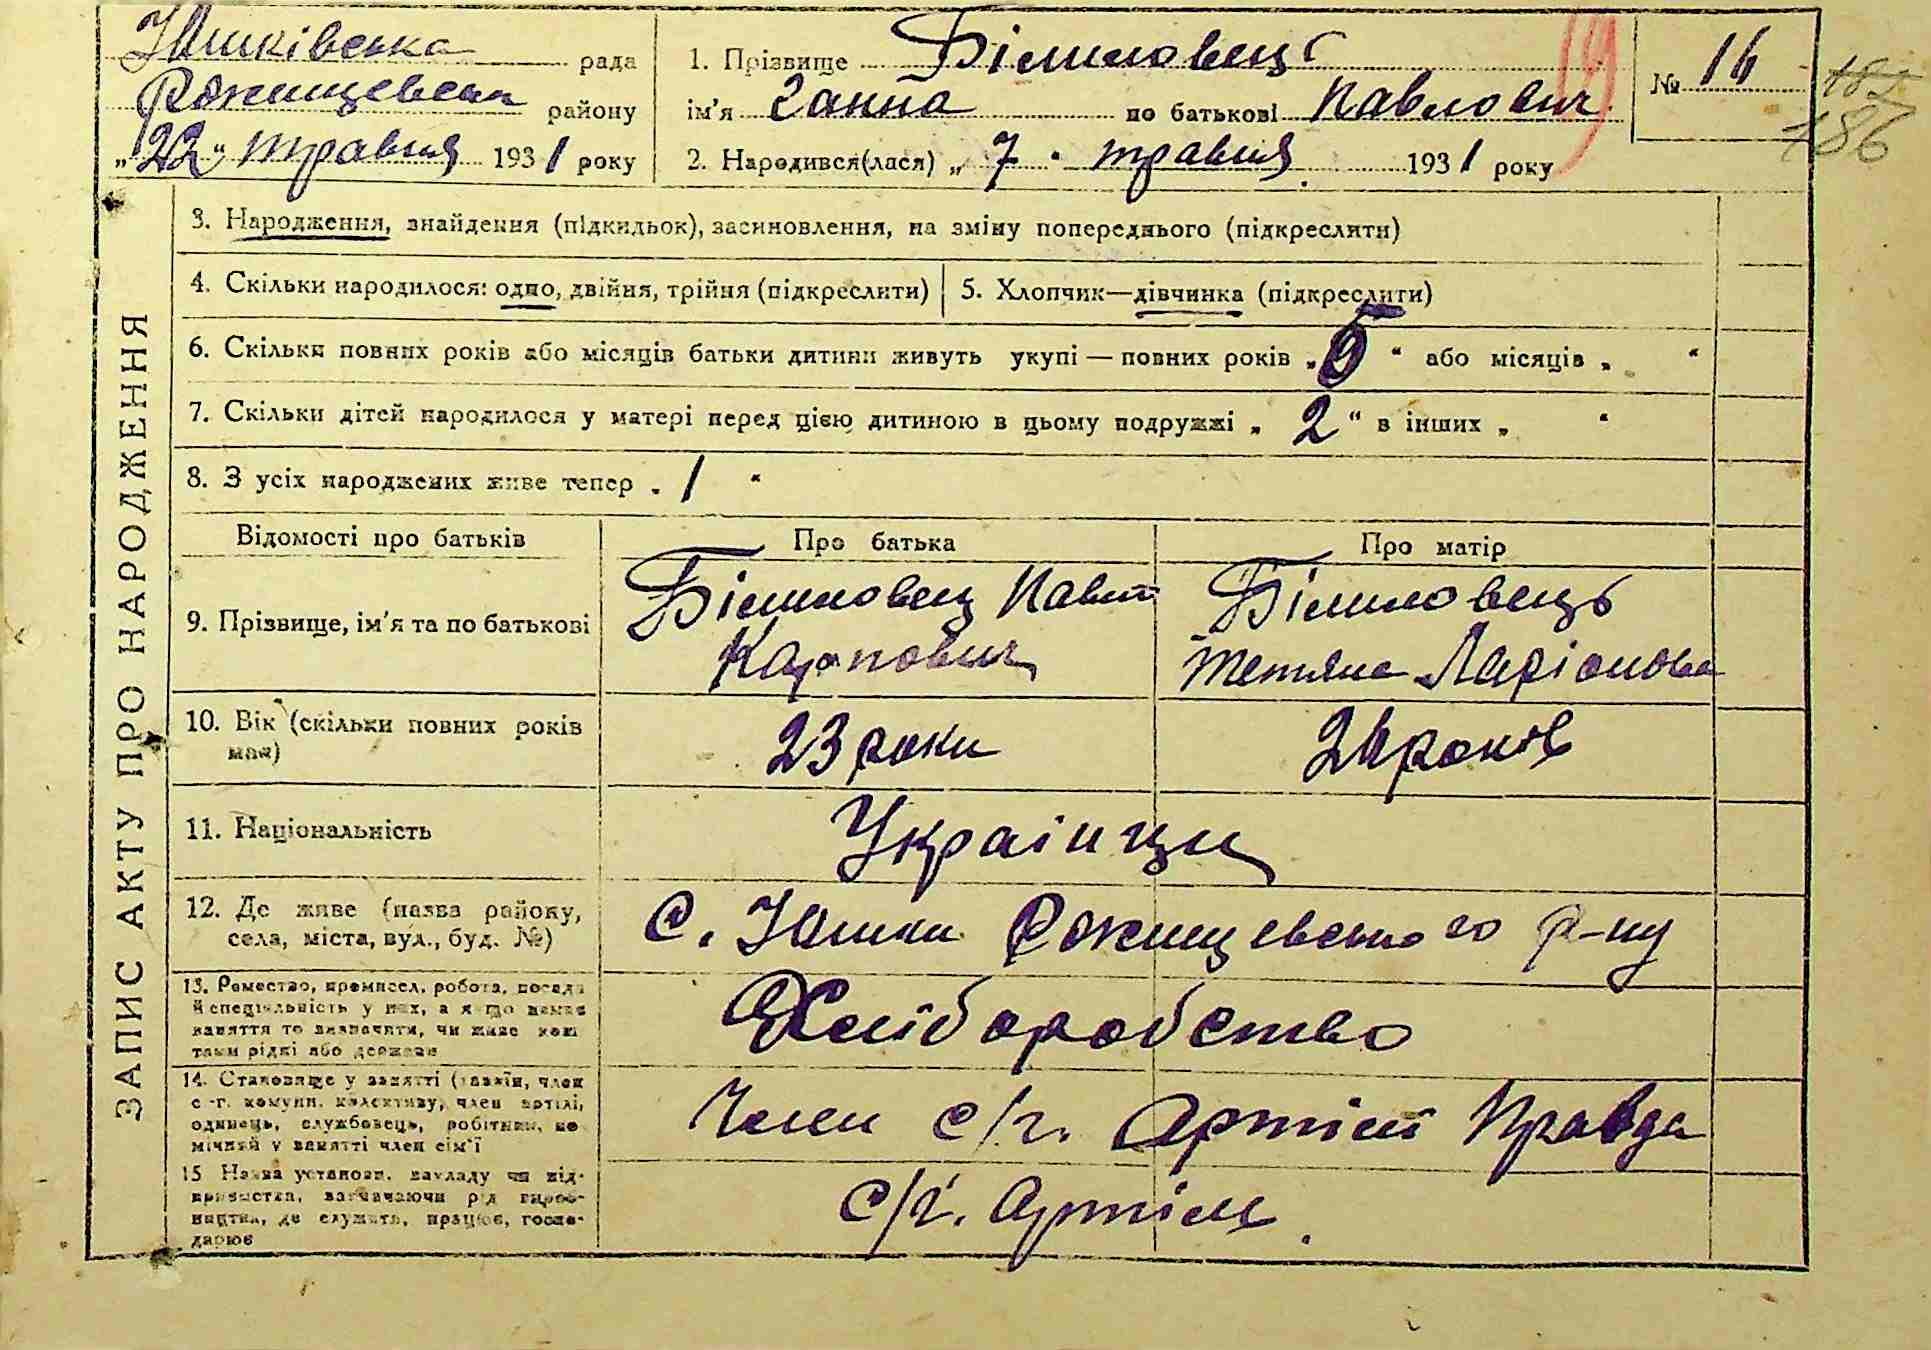 Юшківська рада
Ржищевськ району
„22“ травня 1931 року
1. Прізвище Білиловець
ім'я Ганна по батькові Павлович
2. Народився(лася) „7“ травня 1931 року
№ 16
186
ЗАПИС АКТУ ПРО НАРОДЖЕННЯ
3. Народження, знайдення (підкидьок), засиновлення, на зміну попереднього (підкреслити)
4. Скільки народилося: одно, двійня, трійня (підкреслити)
5. Хлопчик—дівчинка (підкреслити)
6. Скільки повних років або місяців батьки дитини живуть укупі — повних років „5“ або місяців „ “
7. Скільки дітей народилося у матері перед цією дитиною в цьому подружжі „2“ в інших „ “
8. З усіх народжених живе тепер „1“
Відомості про батьків
Про батька
Про матір
9. Прізвище, ім'я та по батькові
Білиловец Павло
Карпович
Білиловець
Тетяна Ларіонова
10. Вік (скільки повних років
має)
23 роки
24 років
11. Національність
Українци
12. Де живе (назва району,
села, міста, вул., буд. №)
с. Юшки Ржищевського р-ну
13. Ремество, промисел, робота, посада
й спеціяльність у них, а якщо немає
заняття то визначити, чи живе кош
тами рідні або держави
Хліборобство
14. Становище у занятті (хазяїн, член
с.-г. комуни, колективу, член артілі,
одинець, службовець, робітник, по
мічний у занятті член сім'ї
Член с/г. Артілі Правда
15 Назва установи, закладу чи під-
приємства, зазначаючи рід вироб-
ництва, де служить, працює, госпо-
дарює
с/г. Артіль